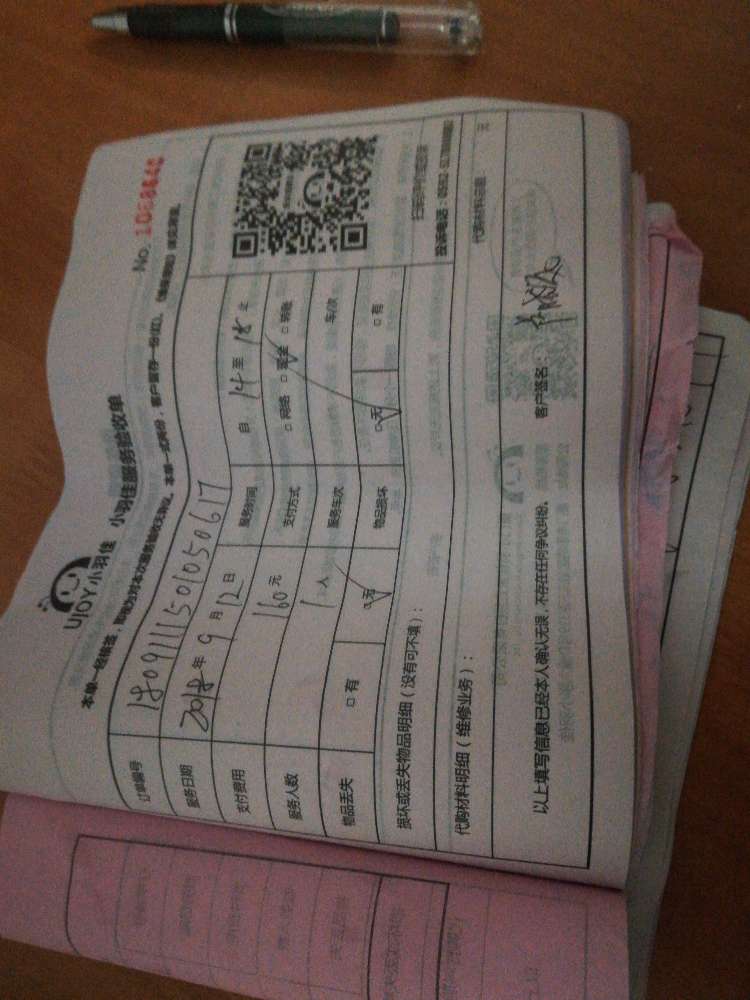 UJOY小羽佳 小羽佳服务验收单
No. 1088646
本单一经填签，即视为对本次服务验收无异议。本单一式两份，客户留存一份(红)。
订单编号 180911115010506​17
服务日期 2018年9月12日 服务时间 自14至18止
支付费用 160元 支付方式 □网络 □现金 □转账
服务人数 1人 服务车次 车/次
物品丢失 □有 □无 物品损坏 □无 □有
损坏或丢失物品明细（没有可不填）：
投诉电话：
代购材料明细（维修业务）：
代购材料总额 元
以上填写信息已经本人确认无误，不存在任何争议纠纷。 客户签名：